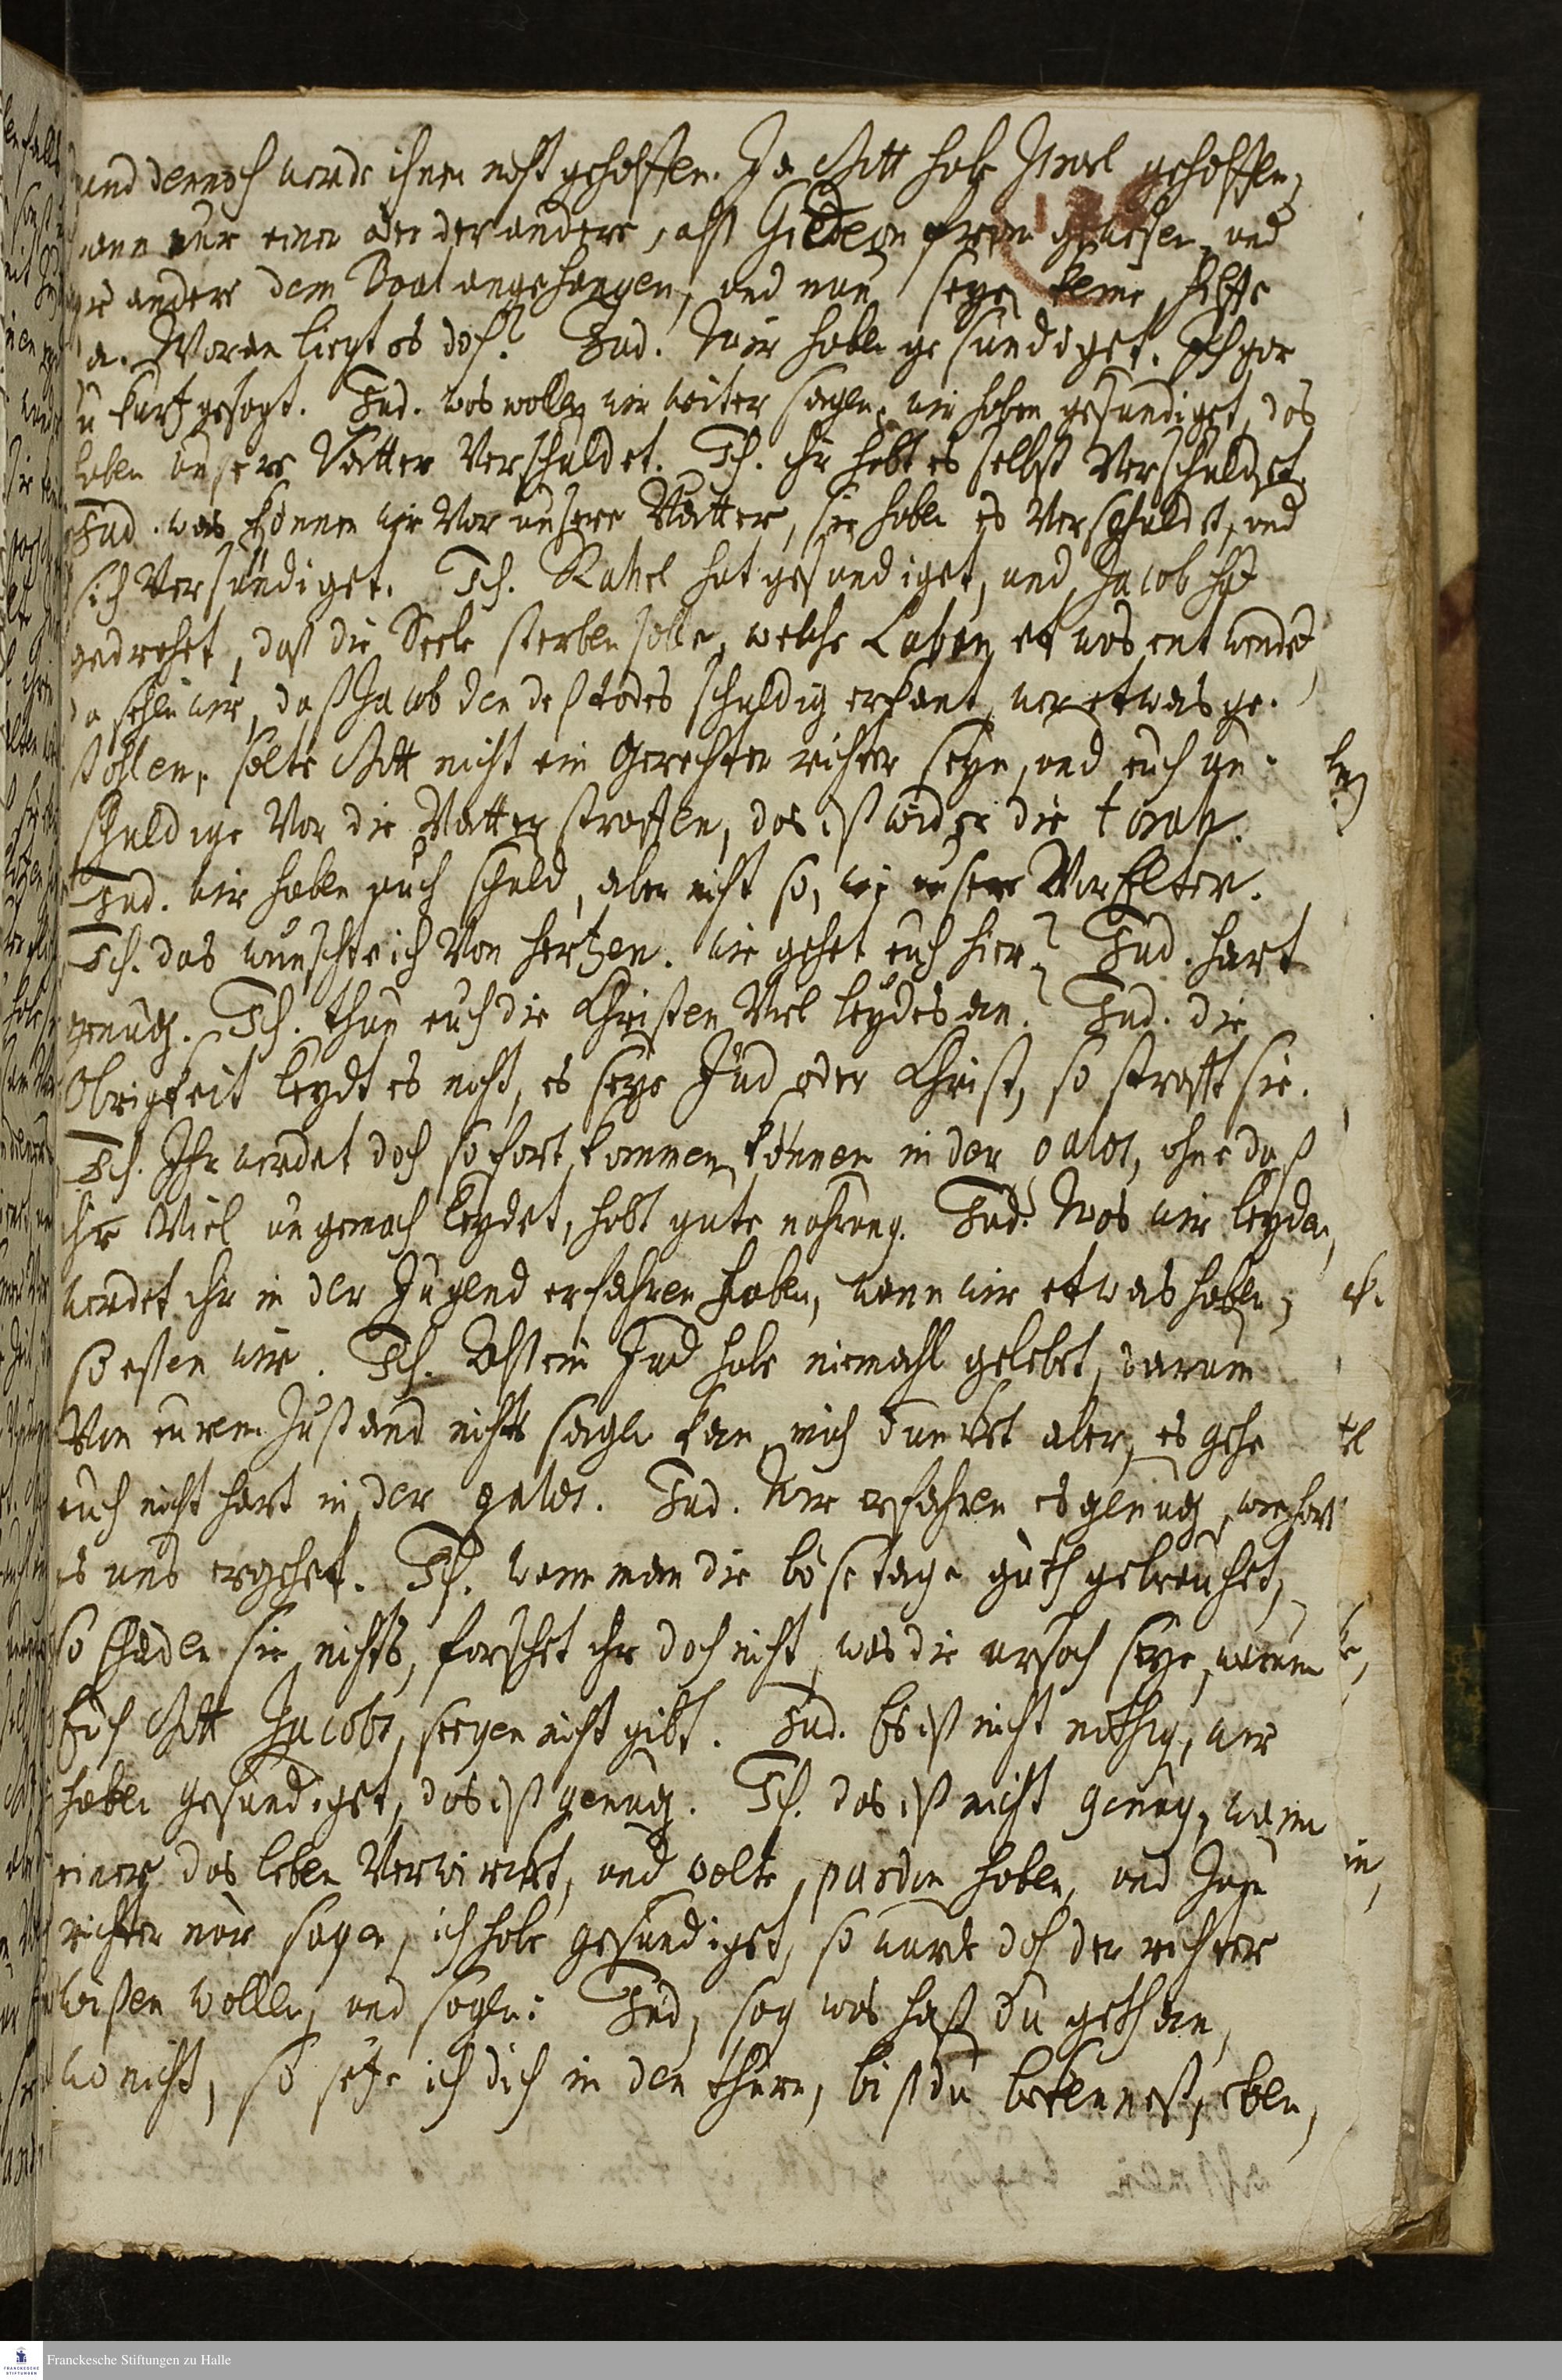 und dennoch werde ihnen nicht geholffen. Ja Gott habe Israel geholffen,
wann nur einer oder der andere, alß Gideon from gewesen, und
andere dem Baal angehangen, und nun seye keine hilffe
da. Woran liegt es doch? Jud. Wir haben gesundiget. Ich gar
zu kurtz gesagt. Jud. was wollen wir weiter sagen, wir haben gesundiget, das
haben unsere Vätter verschuldet. Ich. ihr habt es selbst verschuldet.
Jud. was können wir vor unsere Vätter, sie haben es verschuldet, und
sich versündiget. Ich. Rahel hat gesundiget, und Jacob hat
gedrohet, daß die Seele sterben solle, welche Laban etwas entwendet
da sehen wir, daß Jacob den deß todes schuldig erkant, wer etwas ge-
stohlen, solte Gott nicht ein Gerechter richter seyn, und euch un-
schuldige vor die Vätter straffen, das ist wider die torah.
Jud. wir haben auch schuld, aber nicht so, wie unsere VorElter.
Ich. das wünschte ich von hertzen. wie gehet euch hier? Jud. hart
genug. Ich. thun euch die Christen viel leydes an? Jud. die
Obrigkeit leydt es nicht, es seye Jud oder Christ, so strafft sie.
Ich. Ihr werdet doch so fort kommen können in der galut, ohne daß
ihr viel ungemach leydet, habt gute nahrung. Jud. Was wir leyden,
werdet ihr in der Jugend erfahren haben, wenn wir etwas haben,
so eßen wir. Ich. Alß ein Jud habe niemahl gelebet, darum
von eurem Zustand nichts sagen kan, mich dunckt aber, es gehe
euch nicht hart in der galut. Jud. Wir erfahren es genug, wie hart
es uns ergehet. Ich. wenn man die böse tage guth gebrauchet,
so schaden sie nichts, forschet ihr doch nicht, was die ursach seye, warum
Euch Gott Jacobs seegen nicht gibt. Jud. Es ist nicht nöthig, wir
haben gesündiget, das ist genug. Ich. das ist nicht genug, wenn
einer das leben verwirckt, und wolte pardon haben, und zum
richter nur sagen, ich habe gesündiget, so würde doch der richter
wißen wollen, und sagen: Jud, sag was hast du gethan,
wo nicht, so setze ich dich in den thurn, biß du bekennest, eben,
Franckesche Stiftungen zu Halle